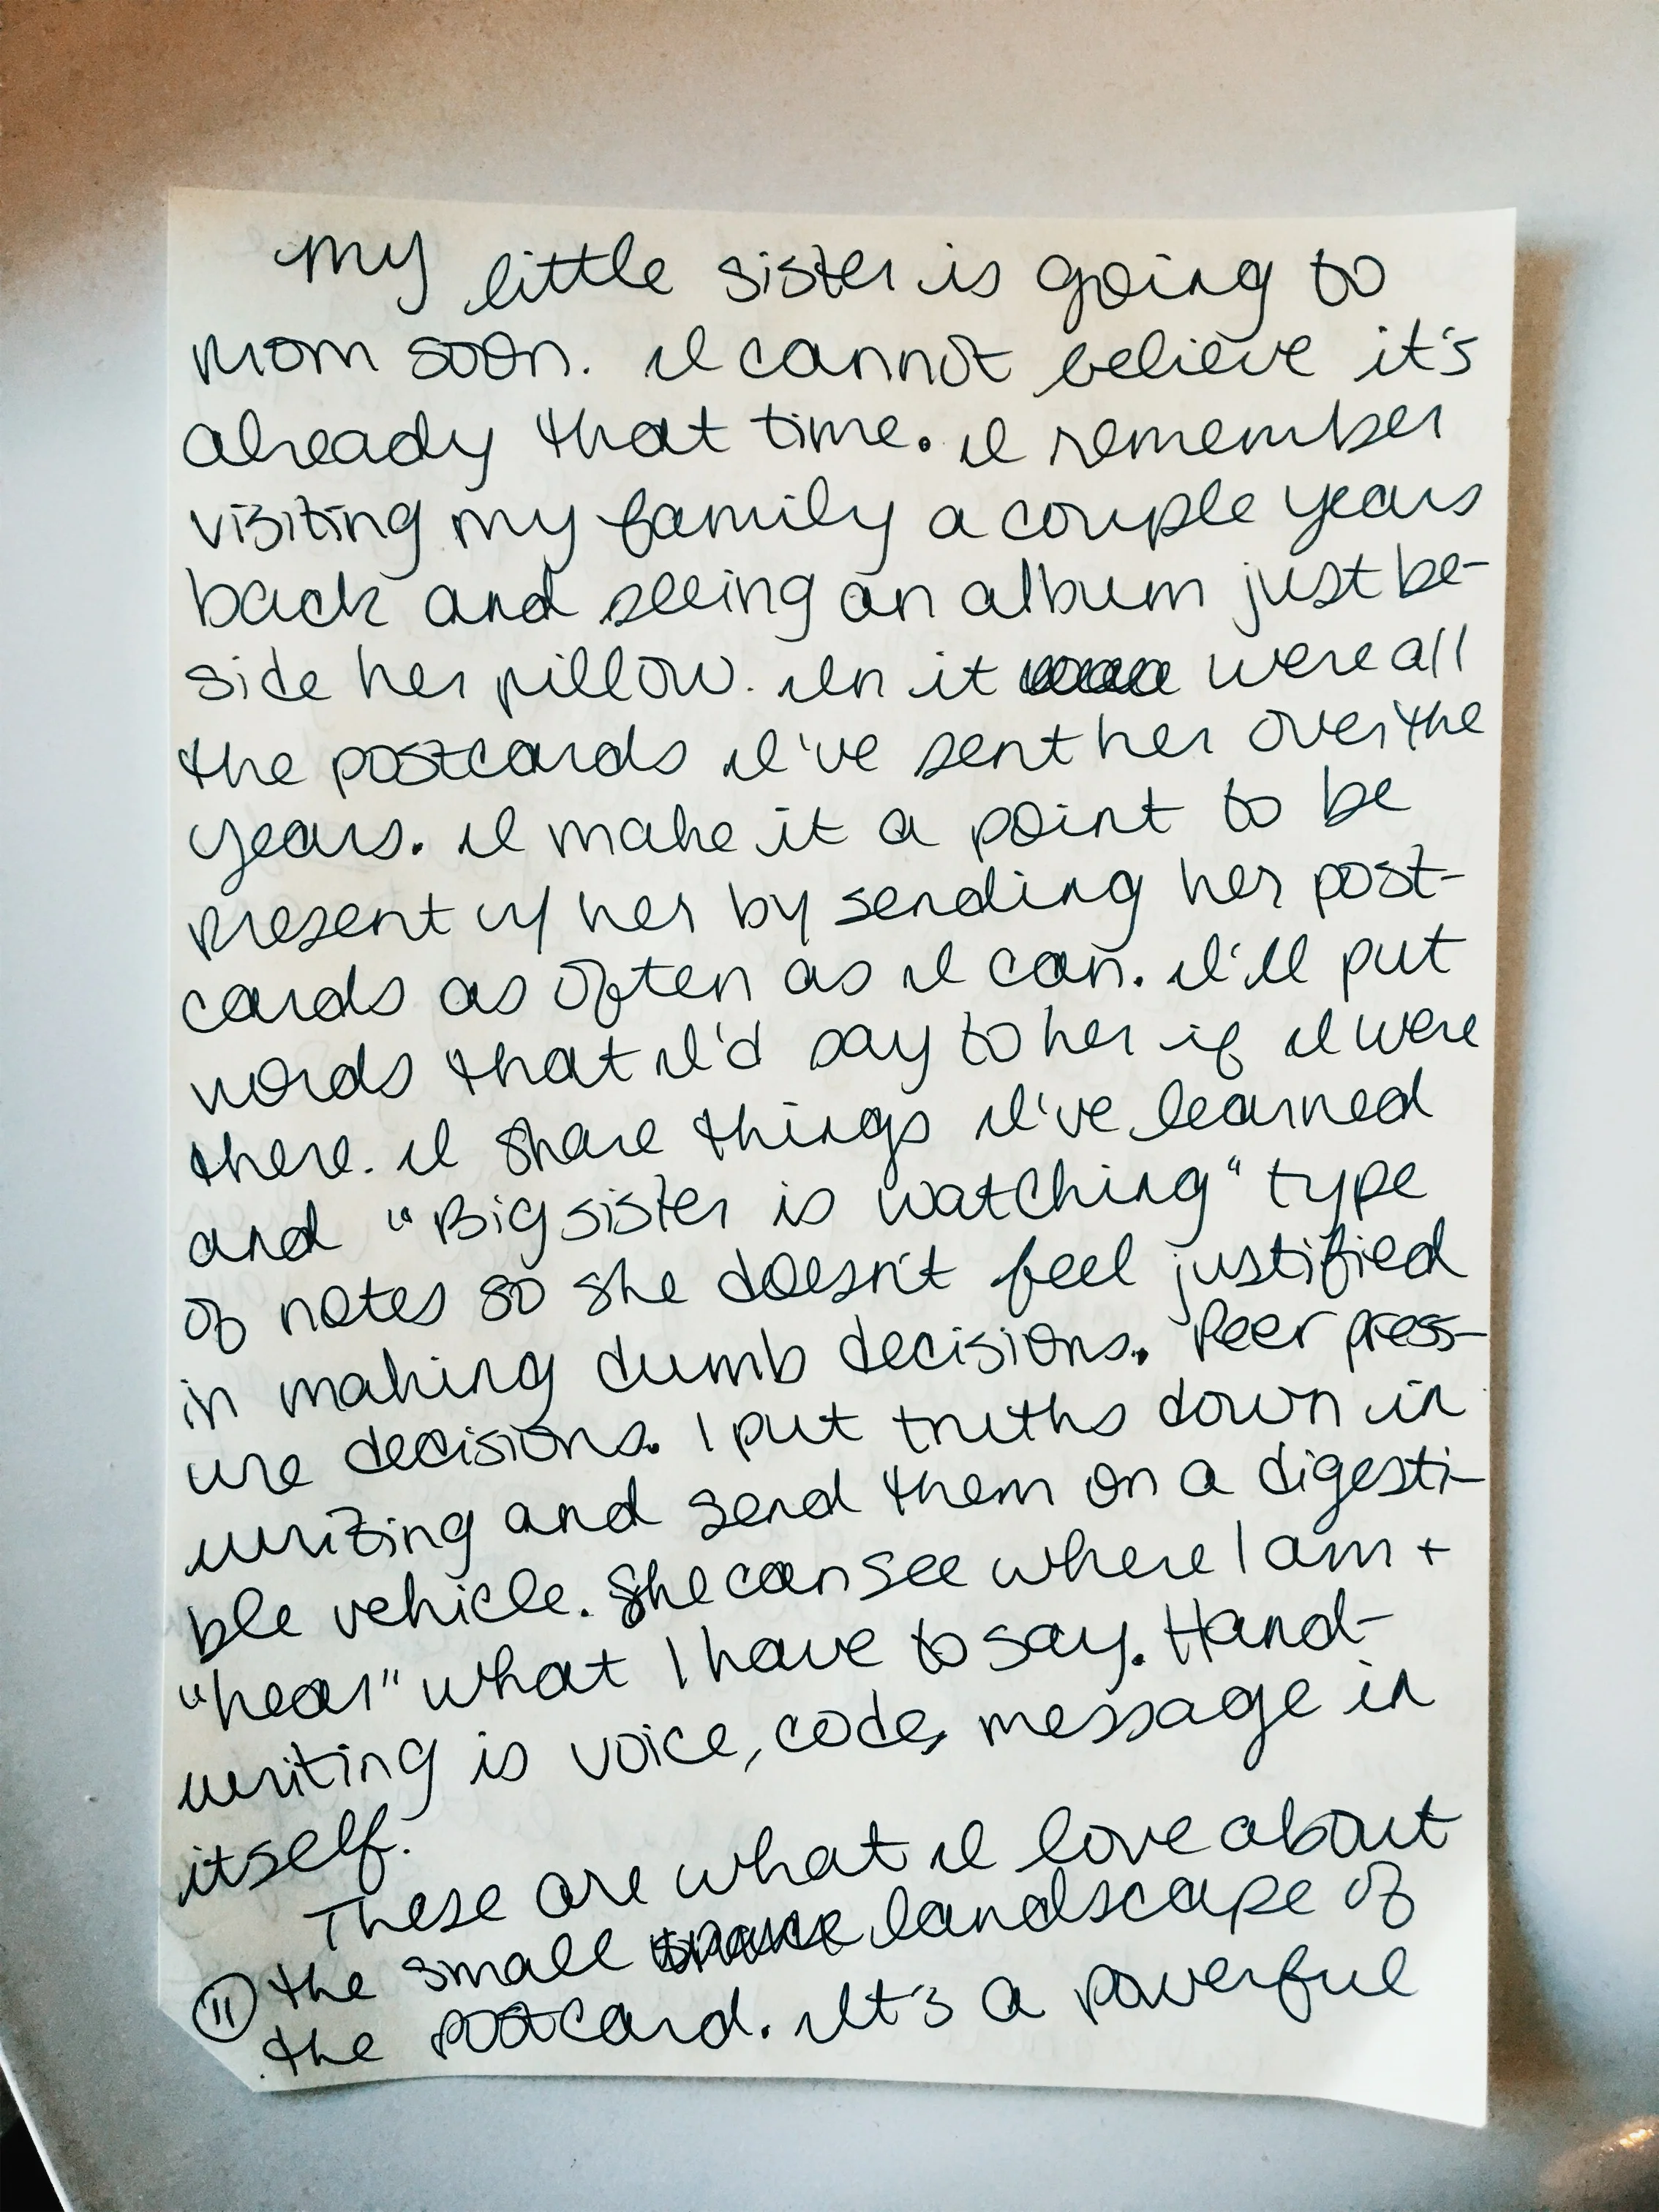 My little sister is going to
prom soon. I cannot believe it's
already that time. I remember
visiting my family a couple years
back and seeing an album just be-
side her pillow. In it were all
the postcards I've sent her over the
years. I make it a point to be
present w/ her by sending her post-
cards as often as I can. I'll put
words that I'd say to her if I were
there. I share things I've learned
and "Big sister is watching" type
of notes so she doesn't feel justified
in making dumb decisions. Peer press-
ure decisions. I put truths down in
writing and send them on a digesti-
ble vehicle. She can see where I am +
"hear" what I have to say. Hand-
writing is voice, code, message in
itself.
These are what I love about
the small landscape of
11 the postcard. It's a powerful